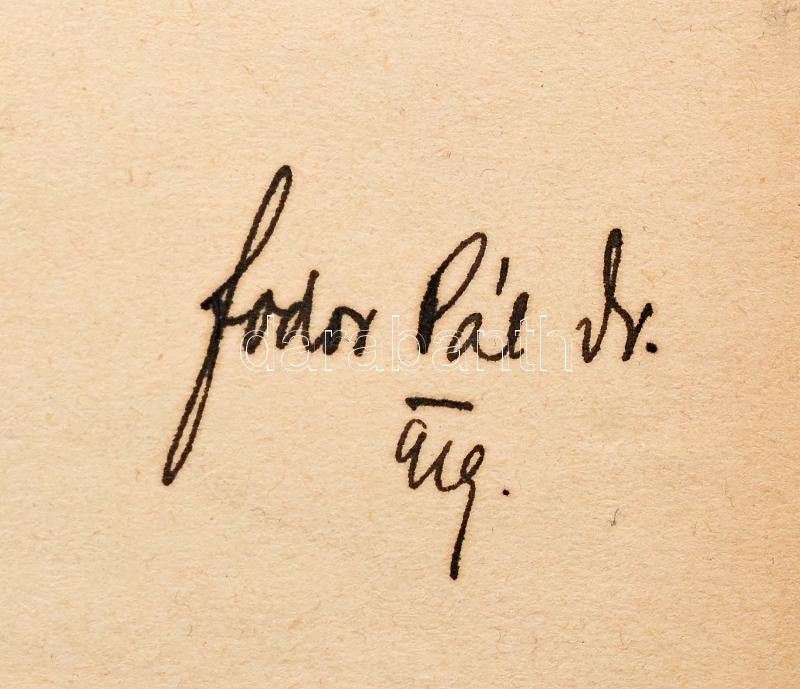 Fodor Pál dr.
919.
darabanth